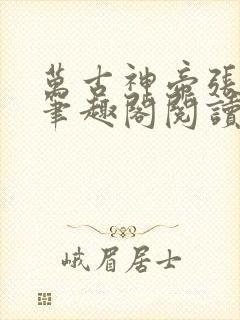 萬古神帝張
筆趣閣閱讀
峨眉居士